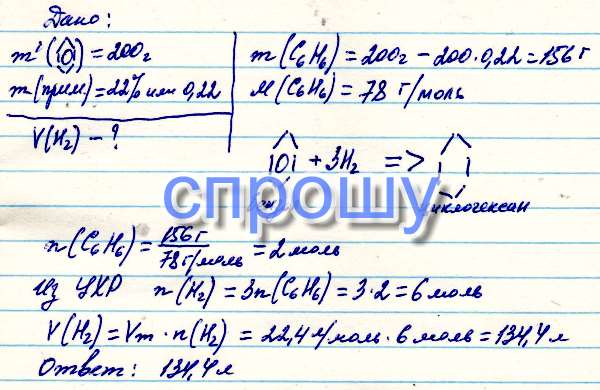 Дано:
m'( ) = 200г
m(прим) = 22% или 0,22
V(H₂) - ?
m(C₆H₆) = 200г - 200·0,22 = 156 г
M(C₆H₆) = 78 г/моль
+ 3H₂ =>
спрошу
циклогексан
n(C₆H₆) = 156 г / 78 г/моль = 2 моль
Из УХР n(H₂) = 3n(C₆H₆) = 3·2 = 6 моль
V(H₂) = Vm · n(H₂) = 22,4 л/моль · 6 моль = 134,4 л
Ответ: 134,4 л